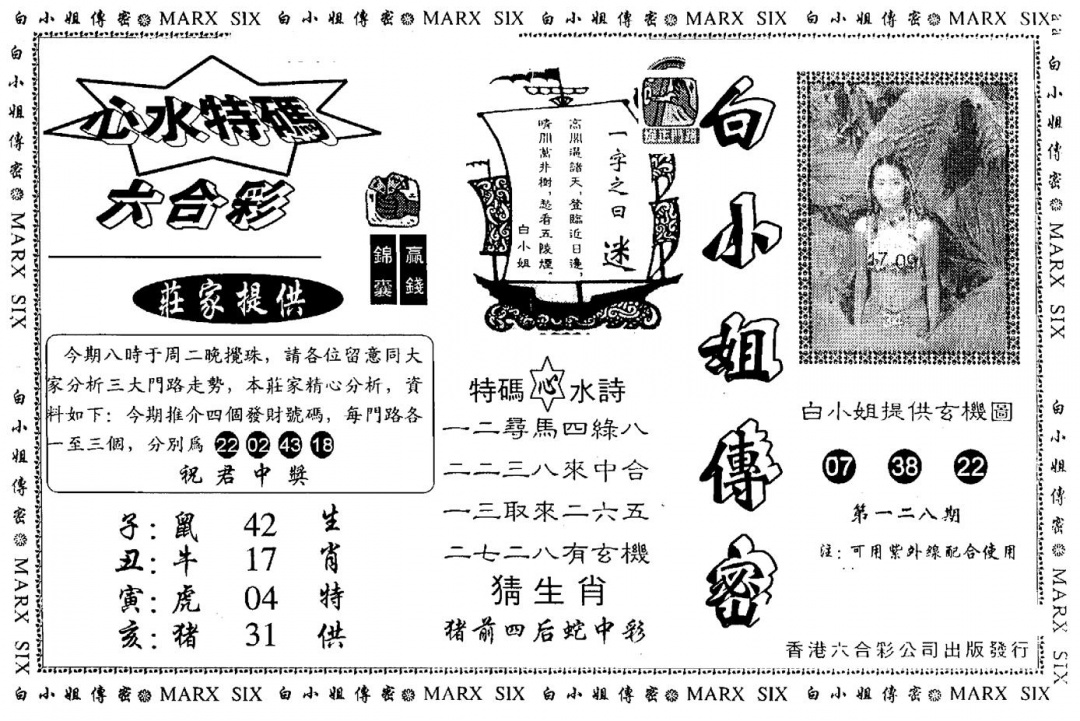 白小姐傳密 MARX SIX 白小姐傳密 MARX SIX 白小姐傳密 MARX SIX 白小姐傳密 MARX SIX
白小姐傳密 MARX SIX 白小姐傳密 MARX SIX
心水特碼
六合彩
贏錢
錦囊
莊家提供
今期八時于周二晚攪珠，請各位留意同大
家分析三大門路走勢，本莊家精心分析，資
料如下：今期推介四個發財號碼，每門路各
一至三個，分別爲 22 02 43 18
祝君中獎
子：鼠 42
丑：牛 17
寅：虎 04
亥：猪 31
生肖特供
一字之曰 迷
高閣逼諸天，登臨近日邊，
晴開萬井樹，愁看五陵煙。
白小姐
特碼心水詩
一二尋馬四綠八
二二三八來中合
一三取來二六五
二七二八有玄機
猜生肖
猪前四后蛇中彩
白小姐傳密
47.09
白小姐提供玄機圖
07 38 22
第一二八期
注：可用紫外線配合使用
香港六合彩公司出版發行
白小姐傳密 MARX SIX 白小姐傳密 MARX SIX
白小姐傳密 MARX SIX 白小姐傳密 MARX SIX 白小姐傳密 MARX SIX 白小姐傳密 MARX SIX